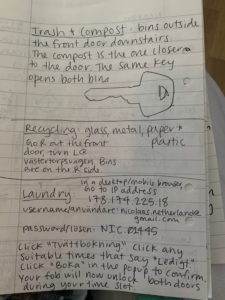 Trash & compost: bins outside
the front door downstairs.
The compost is the one closer
to the door. The same key
opens both bins
Recycling: glass, metal, paper &
plastic
Go R out the front
door, turn L @
västertorpsvägen. Bins
are on the R side.
Laundry in a desktop/mobile browser
go to IP address
178.174.225.18
username/användare: nicolaas.netherlands@
gmail.com
password/lösen: NIC.01445
Click "Tvättbokning" click any
suitable times that say "Ledigt"
Click "Boka" in the popup to confirm.
Your fob will now unlock both doors
during your time slot.